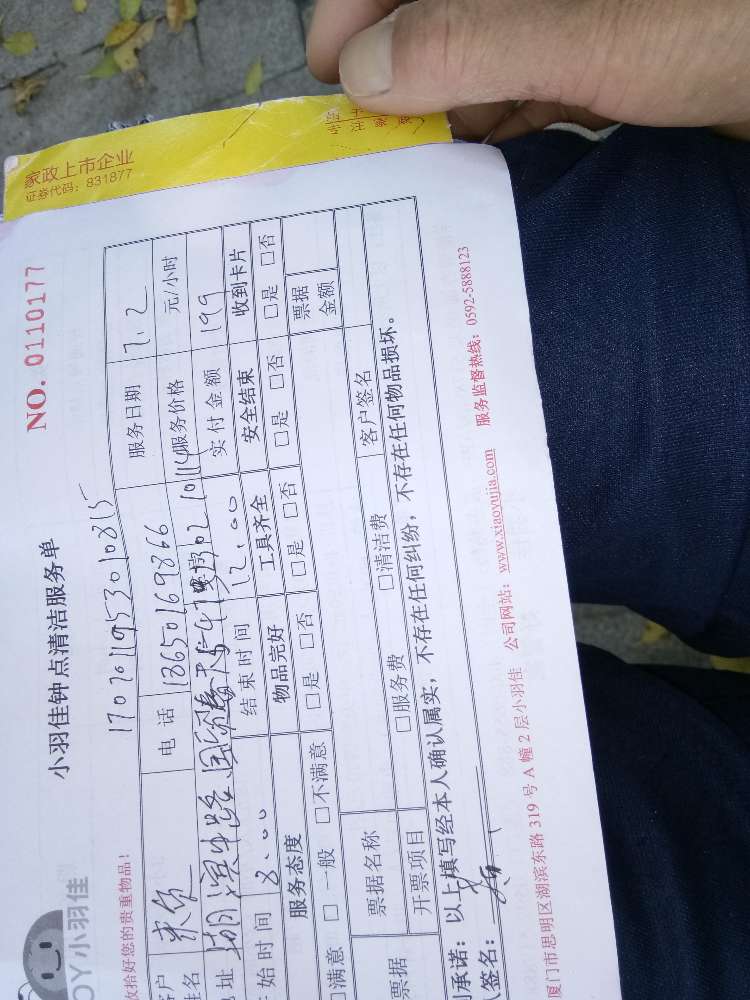 家政上市企业
证券代码：831877
专注家
NO. 0110177
小羽佳钟点清洁服务单
OY小羽佳
收拾好您的贵重物品！
1707011953010815
客户姓名
电话 13650169866
服务日期 7.2
地址
服务价格 元/小时
开始时间 8:00
结束时间 12:00
实付金额 199
服务态度 物品完好 工具齐全 安全结束 收到卡片
□满意 □一般 □不满意 □是 □否 □是 □否 □是 □否 □是 □否
票据 票据名称 □服务费 □清洁费 票据金额
开票项目 客户签名
承诺：以上填写经本人确认属实，不存在任何纠纷，不存在任何物品损坏。
人签名：
厦门市思明区湖滨东路 319 号 A 幢 2 层小羽佳 公司网站：www.xiaoyujia.com 服务监督热线：0592-5888123